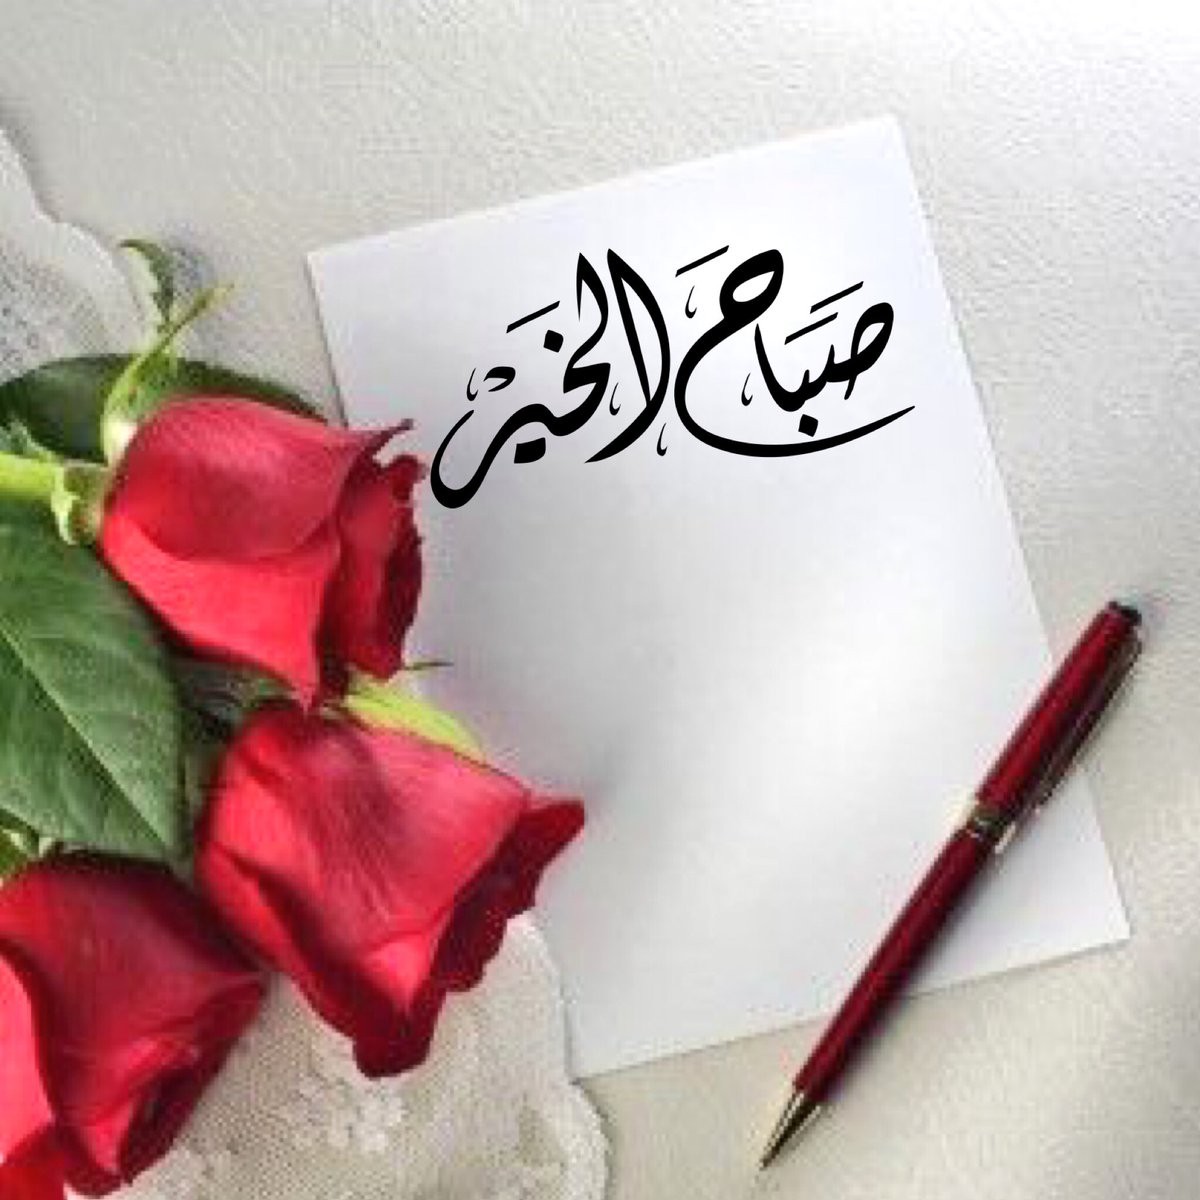 صَبَاحَ الخَيرْ